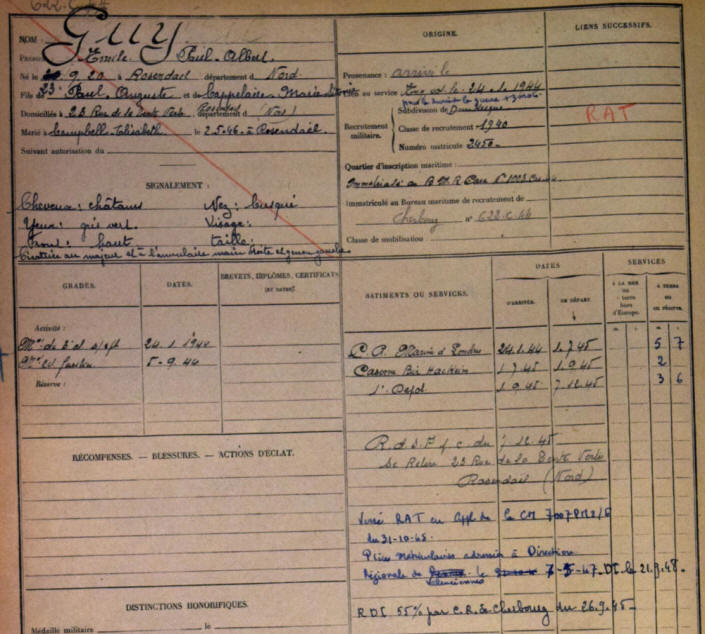 622.C.44
NOM: GUY
Prénoms Emile Paul-Albert.
Né le 20.9.20 à Rosendael département d Nord.
Fils de Paul, Auguste et de Cappelaere Marie
Domiciliés à 23 Rue de la Dente Verte Rosendael département d (Nord)
Marié à Campbell-Elisabeth le 2.5.46. à Rosendaël.
Suivant autorisation du
SIGNALEMENT :
Cheveux: châtains Nez: busqué
Yeux: gris vert. Visage:
Front: haut taille:
Cicatrice au majeur et à l'annulaire main droite et genou gauche
ORIGINE.
Provenance : arrivé le
au service 24.1.1944
pour la durée de la guerre + 3 mois
Recrutement militaire.
Subdivision de Dunkerque
Classe de recrutement 1940
Numéro matricule 2450
Quartier d'inscription maritime :
Immatriculé au B.M.R
Immatriculé au Bureau maritime de recrutement de
Cherbourg n° 622.C.44
Classe de mobilisation :
LIENS SUCCESSIFS.
RAT
GRADES.
DATES.
BREVETS, DIPLÔMES, CERTIFICATS
(ET DATES).
BATIMENTS OU SERVICES.
DATES
D'ARRIVÉE.
DE DÉPART.
SERVICES
À LA MER
ou
à terre
hors
d'Europe.
À TERRE
ou
EN RÉSERVE.
Activité :
Mot de 2e cl s/spé 24.1.1944
Mot fusilier 5-9.44
Réserve :
C.A. Marine Londres 24.1.44 1.7.45 5 7
Caserne Bir Hacheim 1.7.45 1.9.45 2
1er Dépôt 1.9.45 7.12.45 3 6
RÉCOMPENSES. — BLESSURES. — ACTIONS D'ÉCLAT.
R.d.S.F.f.c. du 7.12.45
Se Retire 23 Rue de la Dente Verte
Rosendael (Nord)
Versé RAT en appl de la CM 7007PM2/6
du 31-10-45.
Pièces Matriculaires adressées à Direction
Régionale de Valenciennes le 7-5-47. DI. le 21.9.48.
DISTINCTIONS HONORIFIQUES.
RDI 55% par C.R. de Cherbourg du 26.9.45
Médaille militaire le